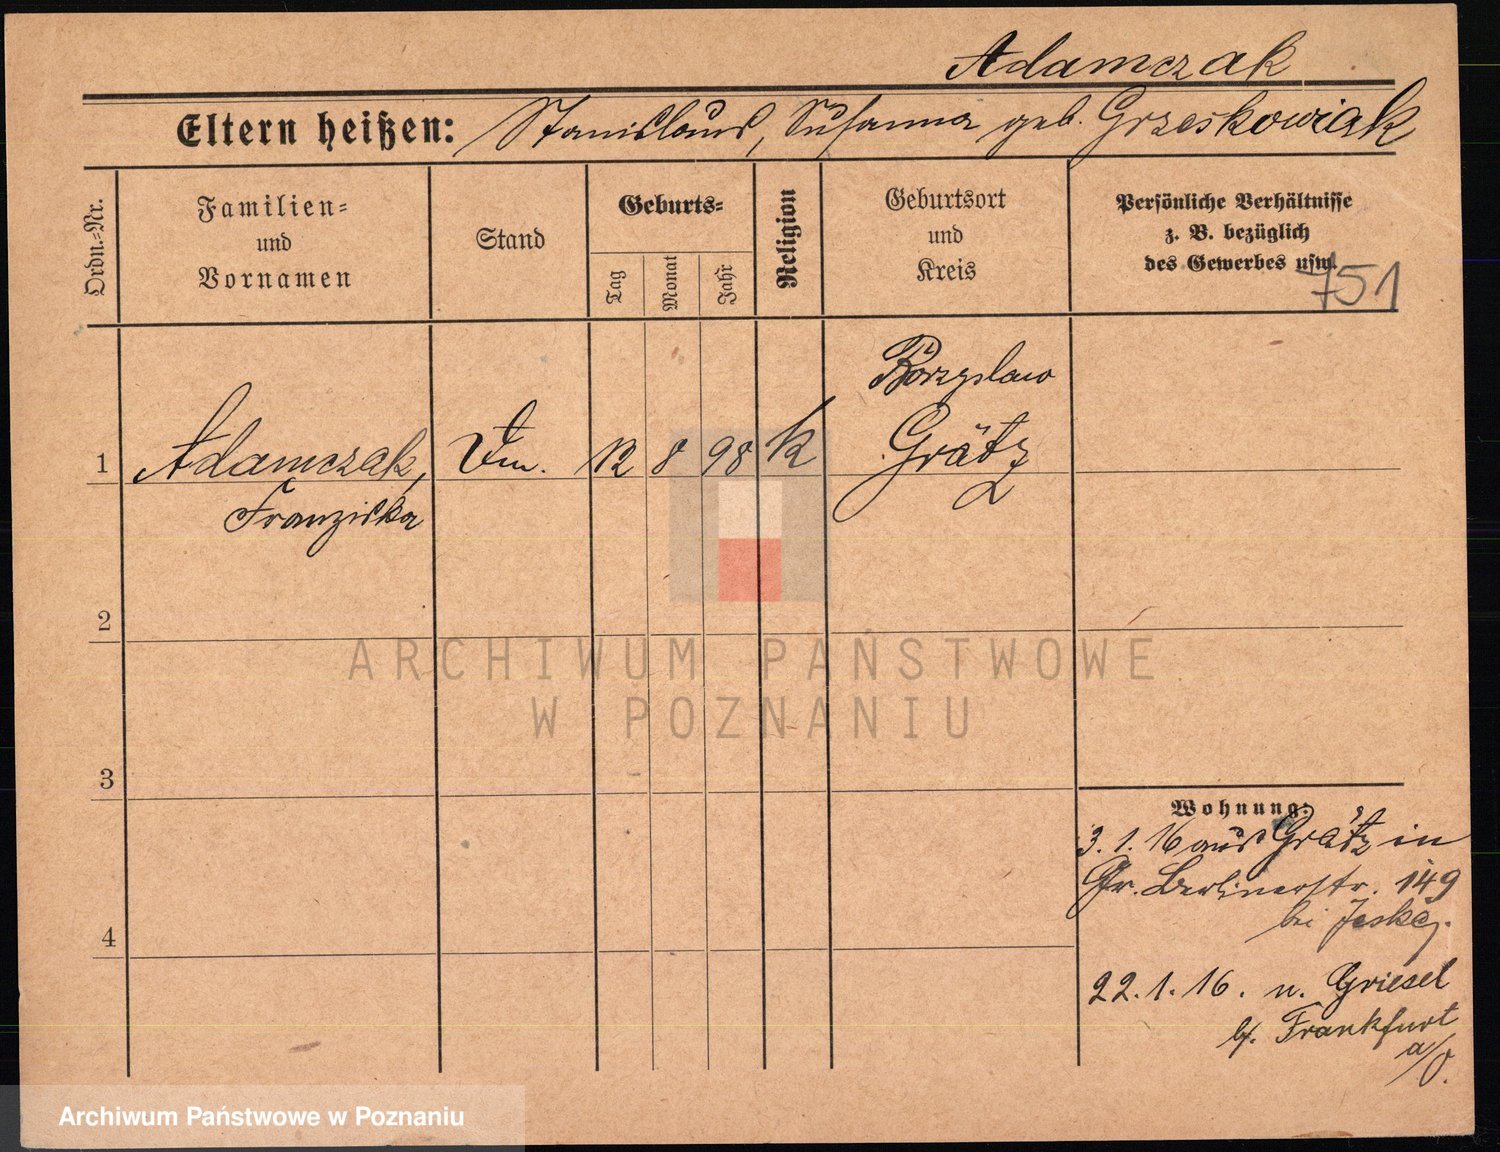 Adamczak
Eltern heißen: Stanislaus, Susanna geb. Grzeskowiak
Ordn.-Nr.
Familien-
und
Vornamen
Stand
Geburts-
Tag
Monat
Jahr
Religion
Geburtsort
und
Kreis
Persönliche Verhältnisse
z. B. bezüglich
des Gewerbes usw.
751
1
Adamczak,
Franziska
12
8
98
K
Borzyslaw
Grätz
2
3
4
Wohnung:
3. 1. 16 aus Grätz in
Gr. Berlinerstr. 149
bei Jeske.
22. 1. 16. n. Griesel
b. Frankfurt
a/O.
ARCHIWUM PAŃSTWOWE
W POZNANIU
Archiwum Państwowe w Poznaniu